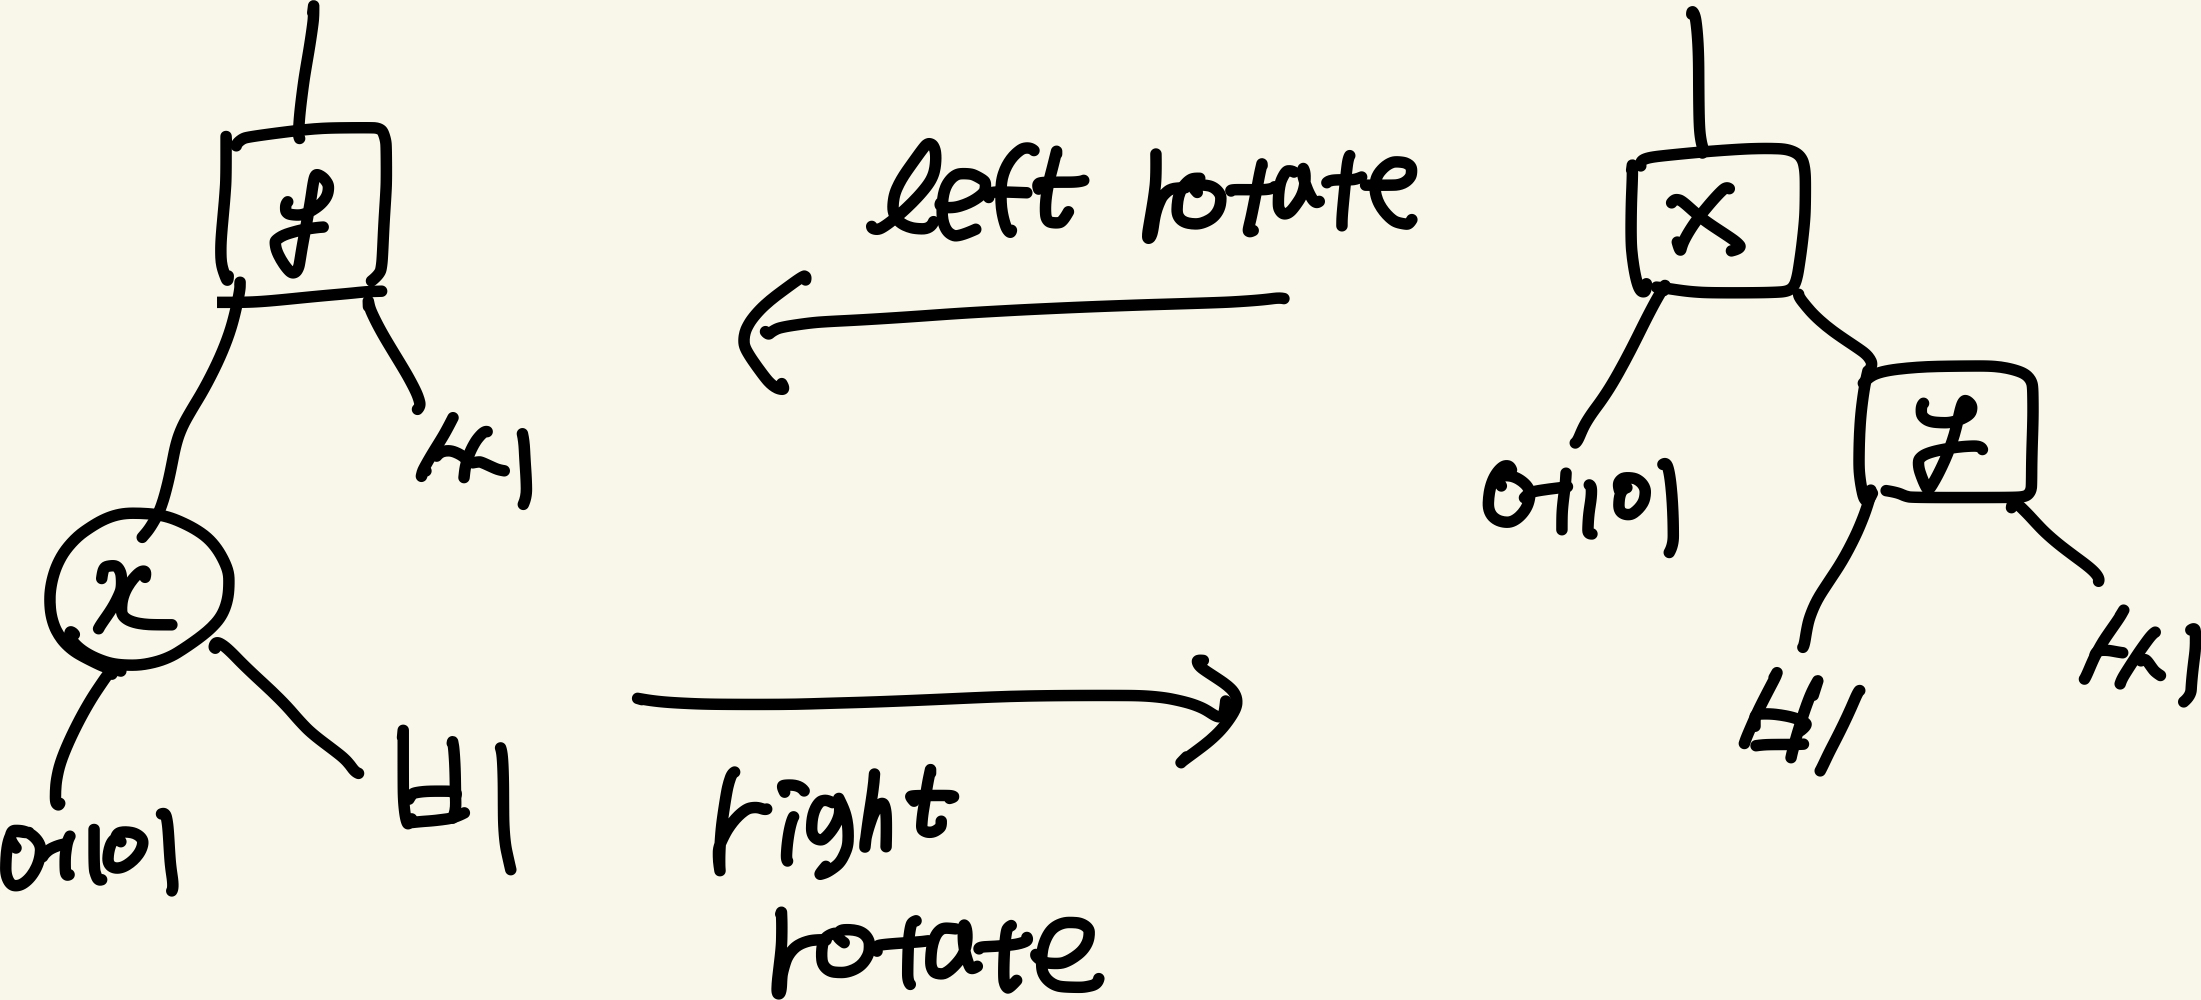 left rotate
y
x
씨
y
에이
x
씨
비
비
에이
right
rotate